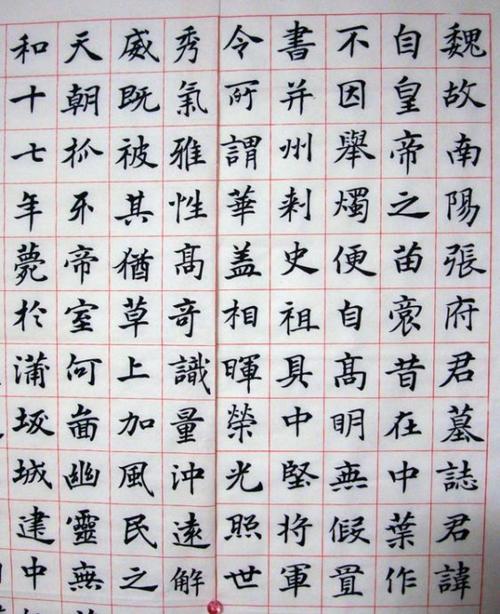 魏故南陽張府君墓誌君諱
自皇帝之苗裔昔在中葉作
不因舉燭便自髙明無假置
書并州刺史祖具中堅將軍
令所謂華蓋相暉榮光照世
秀氣雅性髙奇識量沖遠解
威既被其猶草上加風民之
天朝抓牙帝室何啚幽靈無
和十七年薨於蒲坂城建中